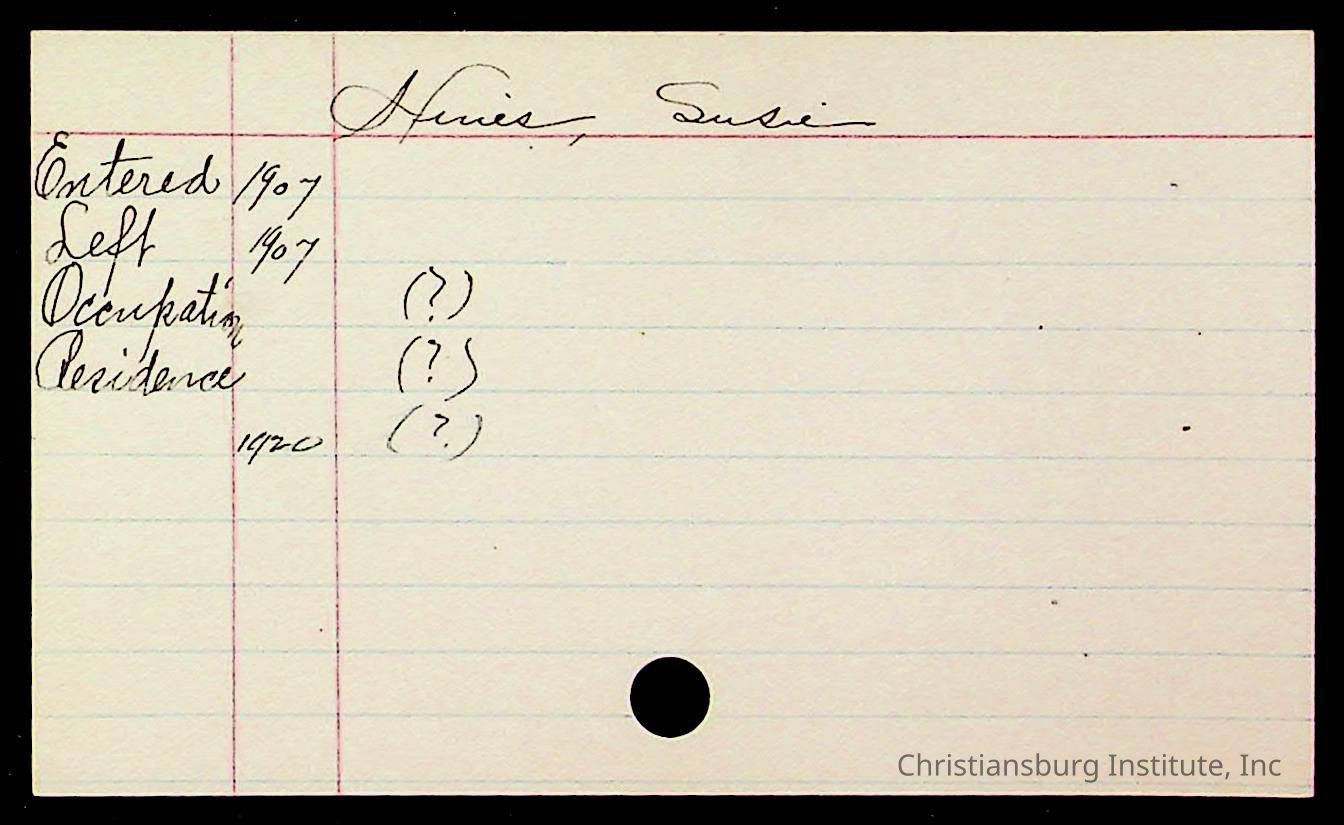 Hines, Susie
Entered 1907
Left 1907
Occupation (?)
Residence (?)
1920 (?)
Christiansburg Institute, Inc